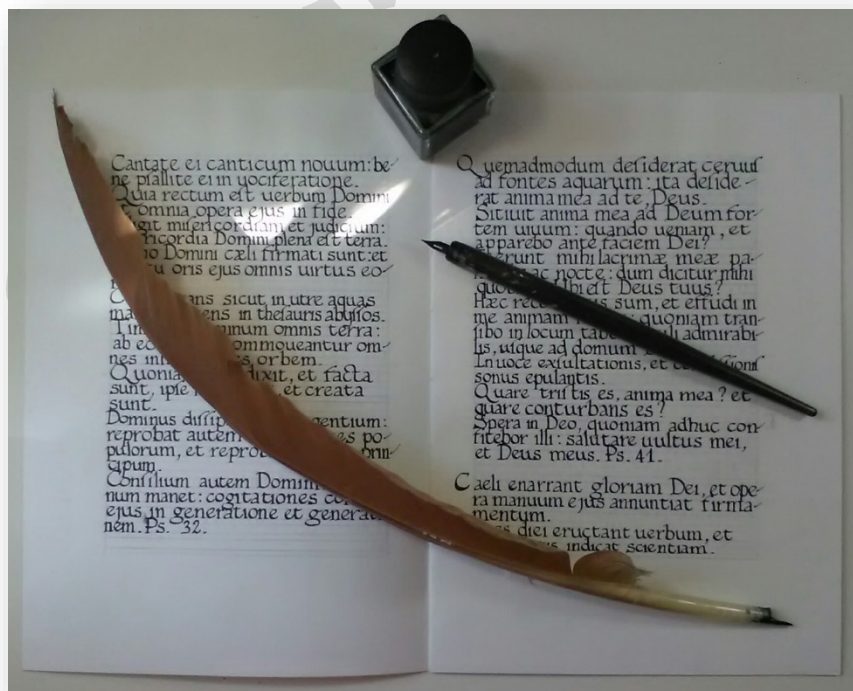 Cantate ei canticum nouum: be-
ne pſallite ei in uociferatione.
Quia rectum eſt uerbum Domini
et omnia opera ejus in fide.
miſericordiam et judicium:
Domini plena eſt terra.
Domini cæli firmati sunt: et
oris ejus omnis uirtus eo-
sicut in utre aquas
in theſauris abyſſos.
omnis terra:
ab commoueantur om-
nes orbem.
Quoniam dixit, et facta
sunt, ipſe et creata
sunt.
Dominus diſſipat gentium:
reprobat autem po-
pulorum, et reprobat prin-
cipum.
Conſilium autem Domini
num manet: cogitationes
ejus in generatione et generatio-
nem. Ps. 32.
Quemadmodum deſiderat ceruuſ
ad fontes aquarum: ita deſide-
rat anima mea ad te, Deus.
Sitiuit anima mea ad Deum for-
tem uiuum: quando ueniam, et
apparebo ante faciem Dei?
mihi lacrimæ meæ pa-
ac nocte: dum dicitur mihi
eſt Deus tuus?
Hæc sum, et effudi in
me animam quoniam tran-
ſibo in locum admirabi-
lis, uſque ad domum
In uoce exſultationis, et
sonus epulantis.
Quare triſtis es, anima mea? et
quare conturbans es?
Spera in Deo, quoniam adhuc con-
fitebor illi: salutare uultus mei,
et Deus meus. Ps. 41.
Caeli enarrant gloriam Dei, et ope-
ra manuum ejus annuntiat firma-
mentum.
diei eructant uerbum, et
indicat scientiam.